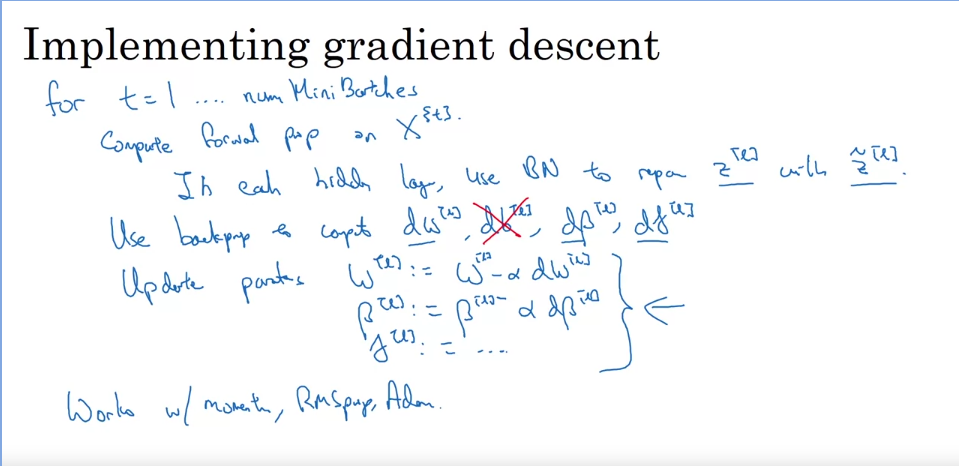 Implementing gradient descent
for t = 1 .... num Mini Batches
Compute forward prop on X^{t}.
In each hidden lay, use BN to repar z^[l] with z̃^[l].
Use backprop to compute dw^[l], db^[l], dβ^[l], dγ^[l]
Update params w^[l] := w^[l] - α dw^[l]
β^[l] := β^[l] - α dβ^[l]
γ^[l] := ....
←
Works w/ momentum, RMSprop, Adam.